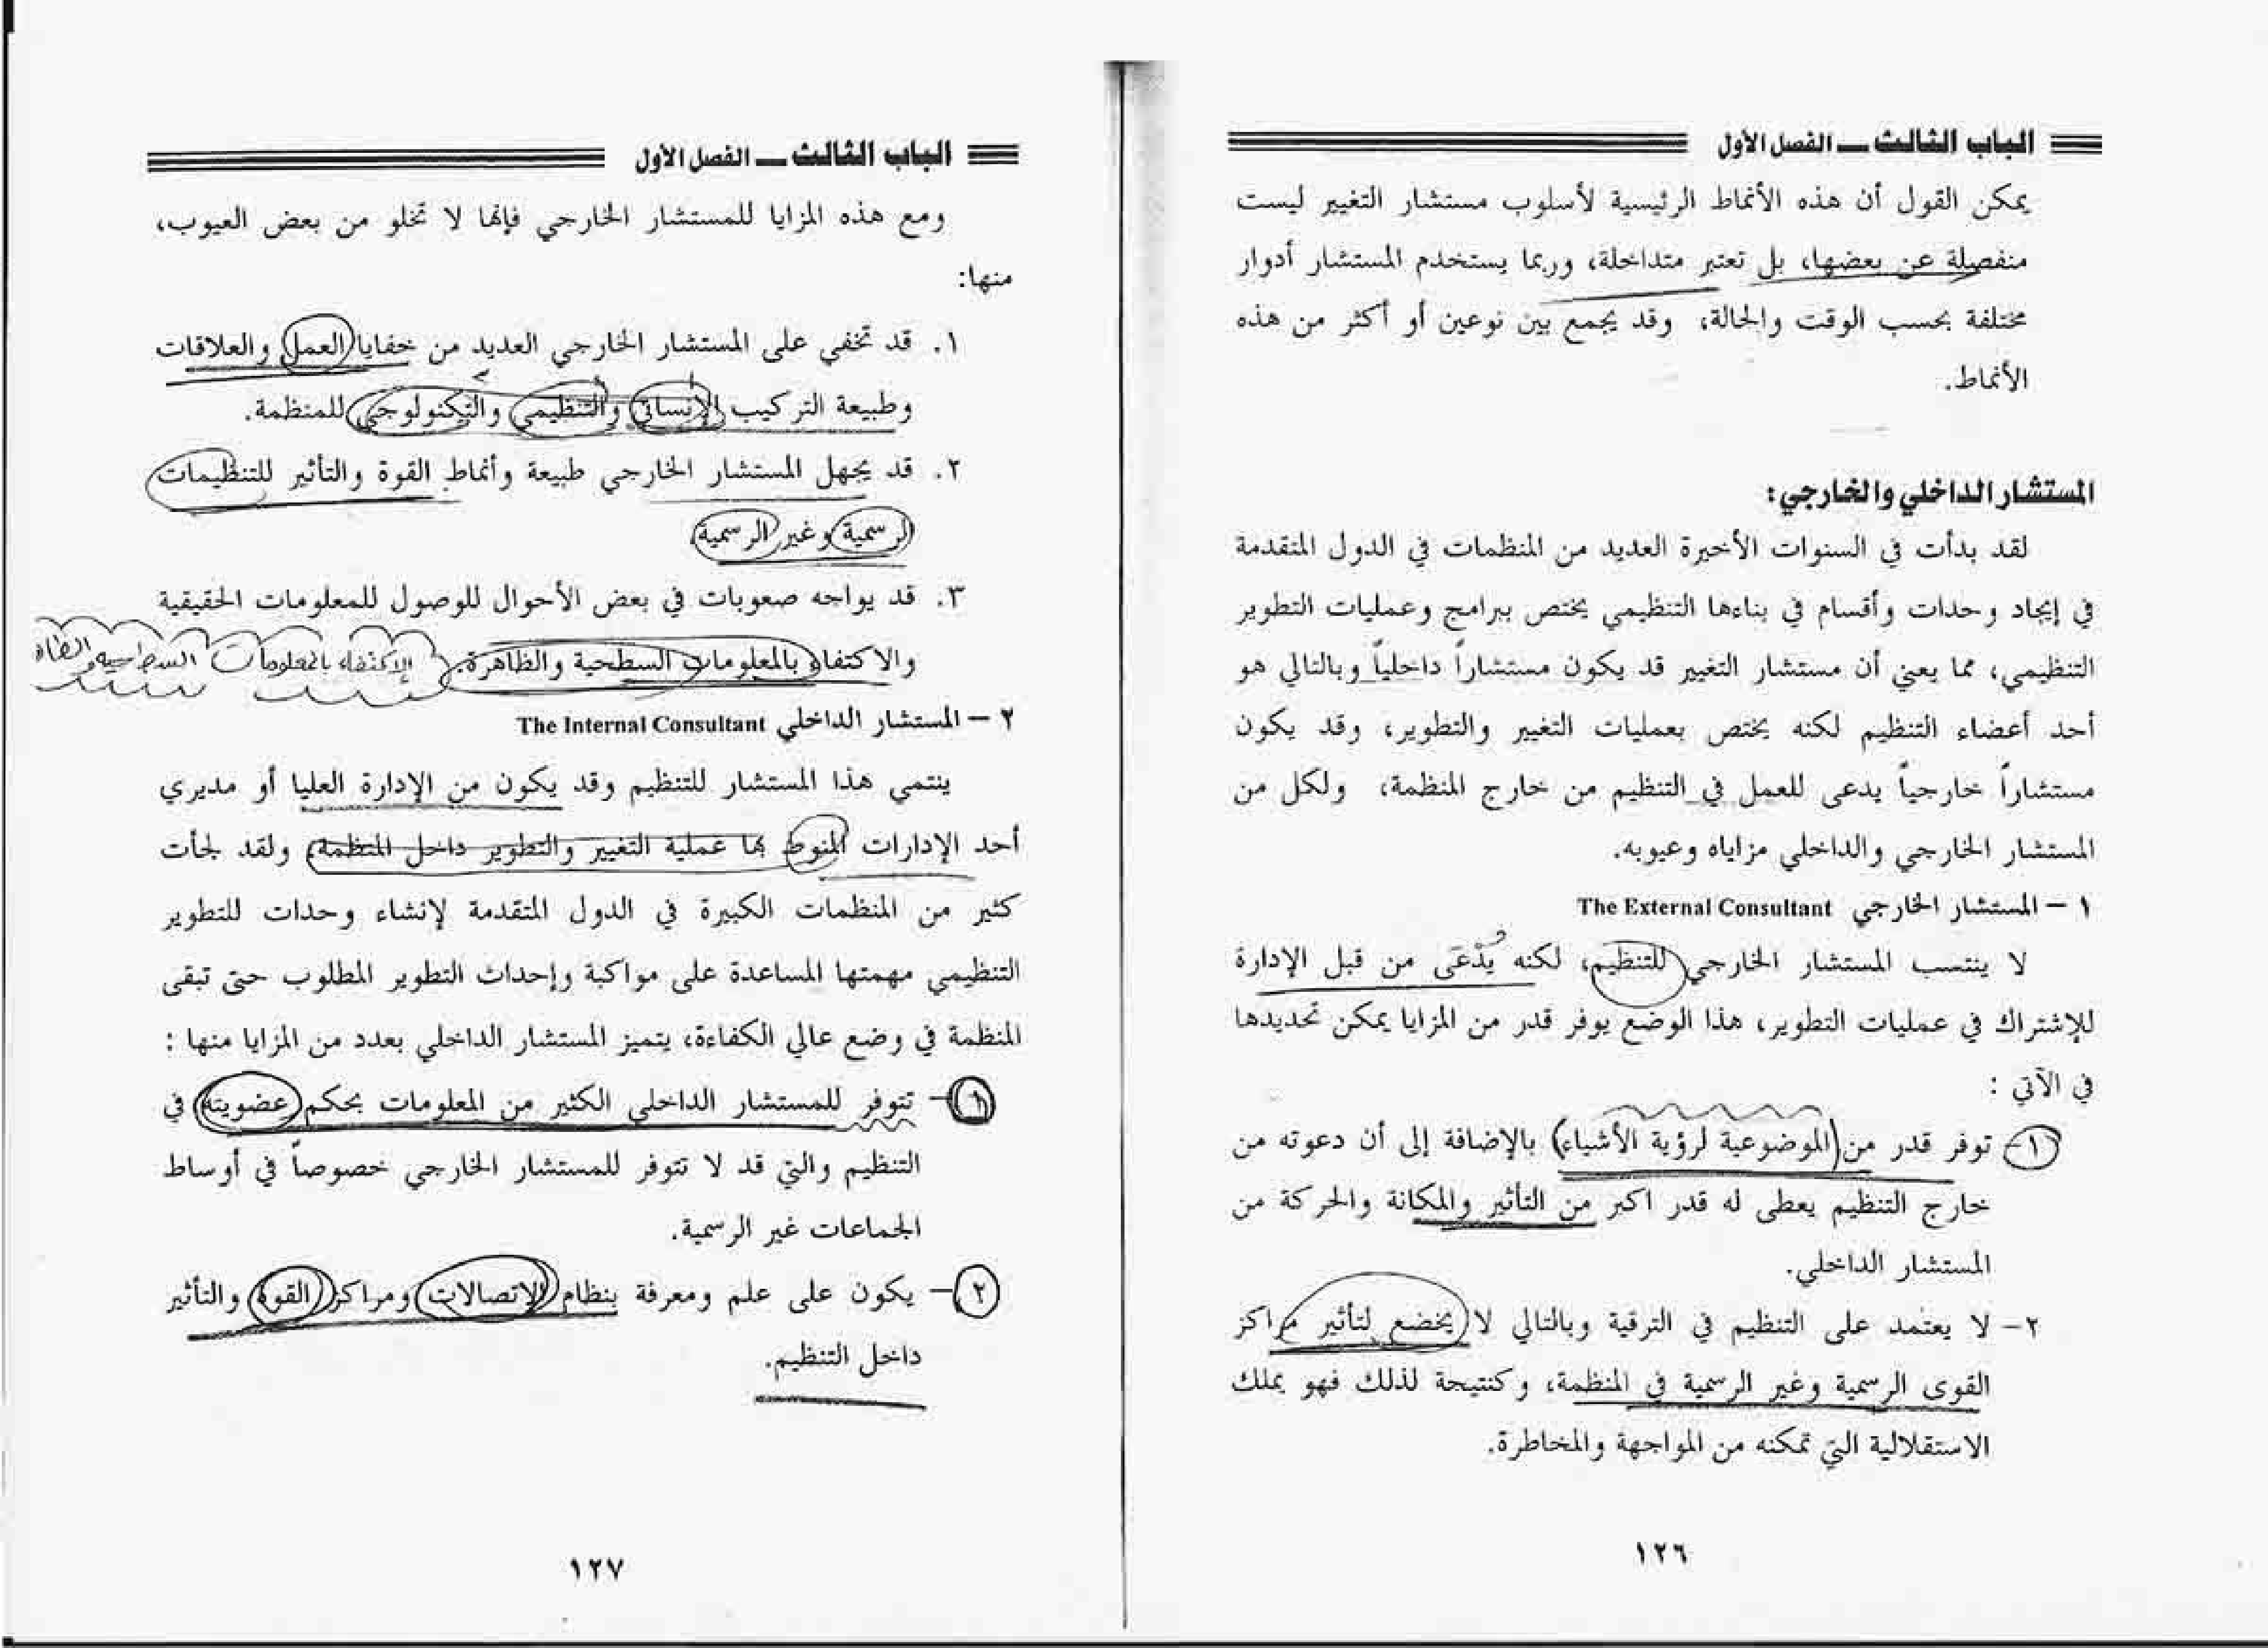 الباب الثالث ـــ الفصل الأول
يمكن القول أن هذه الأنماط الرئيسية لأسلوب مستشار التغيير ليست
منفصلة عن بعضها، بل تعتبر متداخلة، وربما يستخدم المستشار أدوار
مختلفة بحسب الوقت والحالة، وقد يجمع بين نوعين أو أكثر من هذه
الأنماط.
المستشار الداخلي والخارجي:
لقد بدأت في السنوات الأخيرة العديد من المنظمات في الدول المتقدمة
في إيجاد وحدات وأقسام في بناءها التنظيمي يختص ببرامج وعمليات التطوير
التنظيمي، مما يعني أن مستشار التغيير قد يكون مستشاراً داخلياً وبالتالي هو
أحد أعضاء التنظيم لكنه يختص بعمليات التغيير والتطوير، وقد يكون
مستشاراً خارجياً يدعى للعمل في التنظيم من خارج المنظمة، ولكل من
المستشار الخارجي والداخلي مزاياه وعيوبه.
١ – المستشار الخارجي The External Consultant
لا ينتسب المستشار الخارجي للتنظيم، لكنه يُدْعَى من قبل الإدارة
للإشتراك في عمليات التطوير، هذا الوضع يوفر قدر من المزايا يمكن تحديدها
في الآتي :
١– توفر قدر من (الموضوعية لرؤية الأشياء) بالإضافة إلى أن دعوته من
خارج التنظيم يعطى له قدر اكبر من التأثير والمكانة والحركة من
المستشار الداخلي.
٢– لا يعتمد على التنظيم في الترقية وبالتالي لا يخضع لتأثير مراكز
القوى الرسمية وغير الرسمية في المنظمة، وكنتيجة لذلك فهو يملك
الاستقلالية التي تمكنه من المواجهة والمخاطرة.
١٢٦
الباب الثالث ـــ الفصل الأول
ومع هذه المزايا للمستشار الخارجي فإنها لا تخلو من بعض العيوب،
منها:
١. قد تخفي على المستشار الخارجي العديد من خفايا العمل والعلاقات
وطبيعة التركيب الإنساني والتنظيمي والتكنولوجي للمنظمة.
٢. قد يجهل المستشار الخارجي طبيعة وأنماط القوة والتأثير للتنظيمات
الرسمية وغير الرسمية.
٣. قد يواجه صعوبات في بعض الأحوال للوصول للمعلومات الحقيقية
والاكتفاء بالمعلومات السطحية والظاهرة. الإكتفاء بالمعلومات السطحية
٢ – المستشار الداخلي The Internal Consultant
ينتمي هذا المستشار للتنظيم وقد يكون من الإدارة العليا أو مديري
أحد الإدارات المنوط بها عملية التغيير والتطوير داخل المنظمة، ولقد لجأت
كثير من المنظمات الكبيرة في الدول المتقدمة لإنشاء وحدات للتطوير
التنظيمي مهمتها المساعدة على مواكبة وإحداث التطوير المطلوب حتى تبقى
المنظمة في وضع عالي الكفاءة، يتميز المستشار الداخلي بعدد من المزايا منها :
١– تتوفر للمستشار الداخلي الكثير من المعلومات بحكم عضويته في
التنظيم والتي قد لا تتوفر للمستشار الخارجي خصوصاً في أوساط
الجماعات غير الرسمية.
٢– يكون على علم ومعرفة بنظام الإتصالات ومراكز القوة والتأثير
داخل التنظيم.
١٢٧